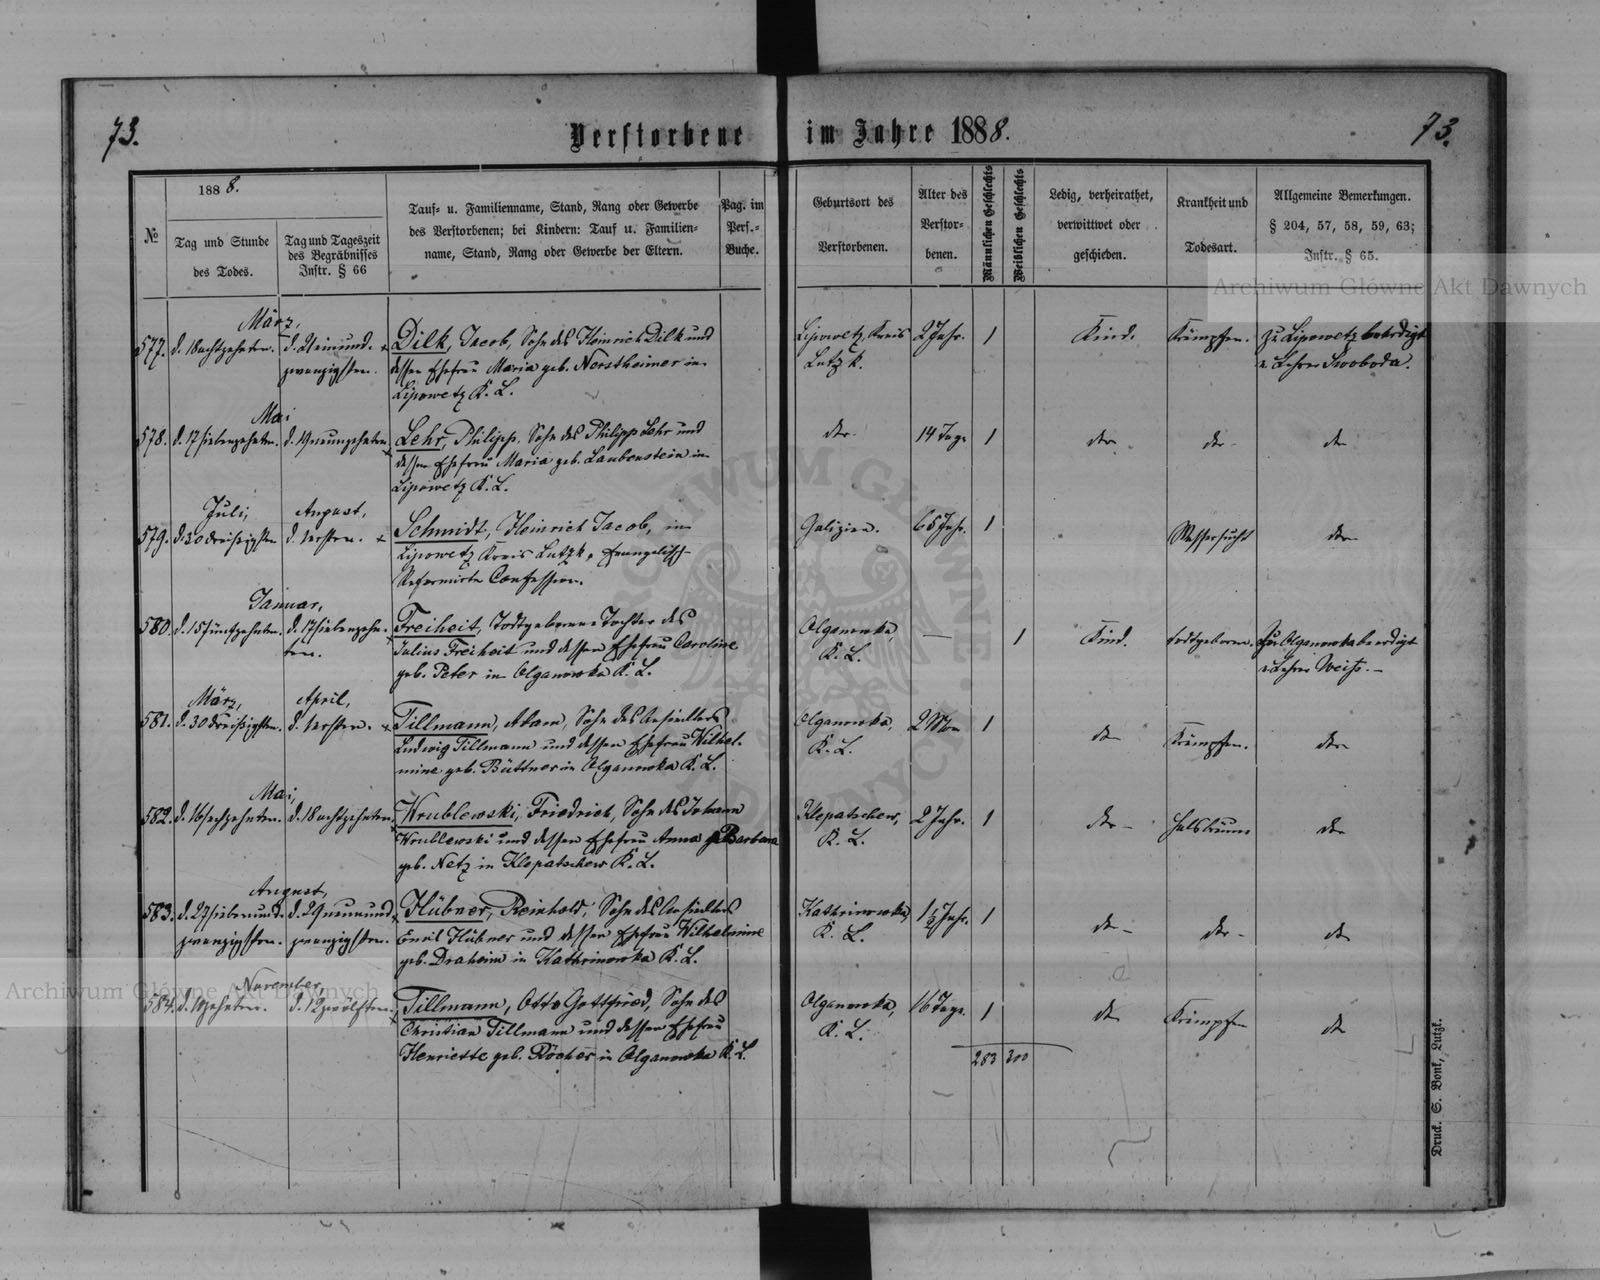 73.
Verstorbene im Jahre 1888.
73.
№
1888.
Tag und Stunde
des Todes.
Tag und Tageszeit
des Begräbnisses
Instr. § 66
Tauf- u. Familienname, Stand, Rang oder Gewerbe
des Verstorbenen; bei Kindern: Tauf u. Familien-
name, Stand, Rang oder Gewerbe der Eltern.
Pag. im
Pers.-
Buche.
Geburtsort des
Verstorbenen.
Alter des
Verstor-
benen.
Männlichen Geschlechts
Weiblichen Geschlechts
Ledig, verheirathet,
verwittwet oder
geschieden.
Krankheit und
Todesart.
Allgemeine Bemerkungen.
§ 204, 57, 58, 59, 63;
Instr. § 65.
März,
577. d. 18 achtzehnten. d. 21 einund- Dilk, Jacob, Sohn des Heinrich Dilk und
zwanzigsten. dessen Ehefrau Maria geb. Nerstheimer in
Lipowetz K. L.
Lipowetz Kreis 2 Jahr. 1 Kind. Krämpfen. Zu Lipowetz beerdigt
Lutzk. v. Lehrer Swoboda.
Mai
578. d. 17 siebenzehnten. d. 19 neunzehnten. Lehr, Philipp, Sohn des Philipp Lehr und
dessen Ehefrau Maria geb. Laubenstein in
Lipowetz K. L.
dto 14 Tage 1 dto dto dto
Juli, August,
579. d. 30 dreißigsten d. 1 ersten. Schmidt, Heinrich Jacob, in
Lipowetz Kreis Lutzk, Evangelisch-
Reformirte Confession.
Galizien. 65 Jahr. 1 Wassersucht dto
Januar,
580. d. 15 fünfzehnten. d. 17 siebenzehn- Freiheit, Todtgeborene Tochter des
ten. Julius Freiheit und dessen Ehefrau Caroline
geb. Peter in Olganowka K. L.
Olganowka, — 1 Kind. todtgeboren. Zu Olganowka beerdigt
K. L. v. Lehrer Weiß. —
März, April,
581. d. 30 dreißigsten. d. 1 ersten. Tillmann, Adam, Sohn des Ansiedlers
Ludwig Tillmann und dessen Ehefrau Wilhel-
mine geb. Büttner in Olganowka K. L.
Olganowka, 2 Mon 1 dto Krämpfen. dto
K. L.
Mai,
582. d. 16 sechzehnten. d. 18 achtzehnten. Wrublewski, Friedrich, Sohn des Johann
Wrublewski und dessen Ehefrau Anna Barbara
geb. Netz in Klepatschew K. L.
Klepatschew, 2 Jahr. 1 dto Halsbräune dto
K. L.
August,
583. d. 27 siebenund- d. 29 neunund- Hübner, Reinhold, Sohn des Ansiedlers
zwanzigsten. zwanzigsten. Emil Hübner und dessen Ehefrau Wilhelmine
geb. Draheim in Kathrinowka K. L.
Kathrinowka, 1½ Jahr. 1 dto dto dto
K. L.
November,
584. d. 10 zehnten. d. 12 zwölften. Tillmann, Otto Gottfried, Sohn des
Christian Tillmann und dessen Ehefrau
Henriette geb. Röcher in Olganowka K. L.
Olganowka, 16 Tage. 1 dto Krämpfen dto
K. L.
283 300
Druck. S. Bonk, Lutzk.
Archiwum Główne Akt Dawnych
Archiwum Główne Akt Dawnych
ARCHIWUM GŁÓWNE AKT DAWNYCH